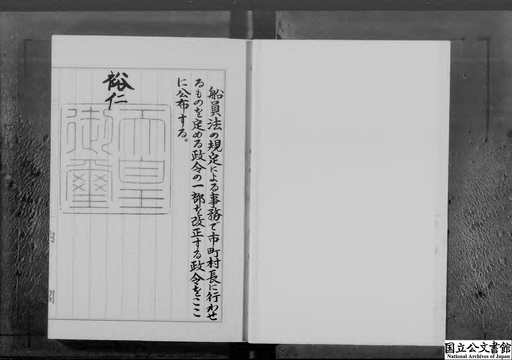 船員法の規定による事務で市町村長に行わせ
るものを定める政令の一部を改正する政令をここ
に公布する。
裕仁
天皇
御璽
内閣
国立公文書館
National Archives of Japan